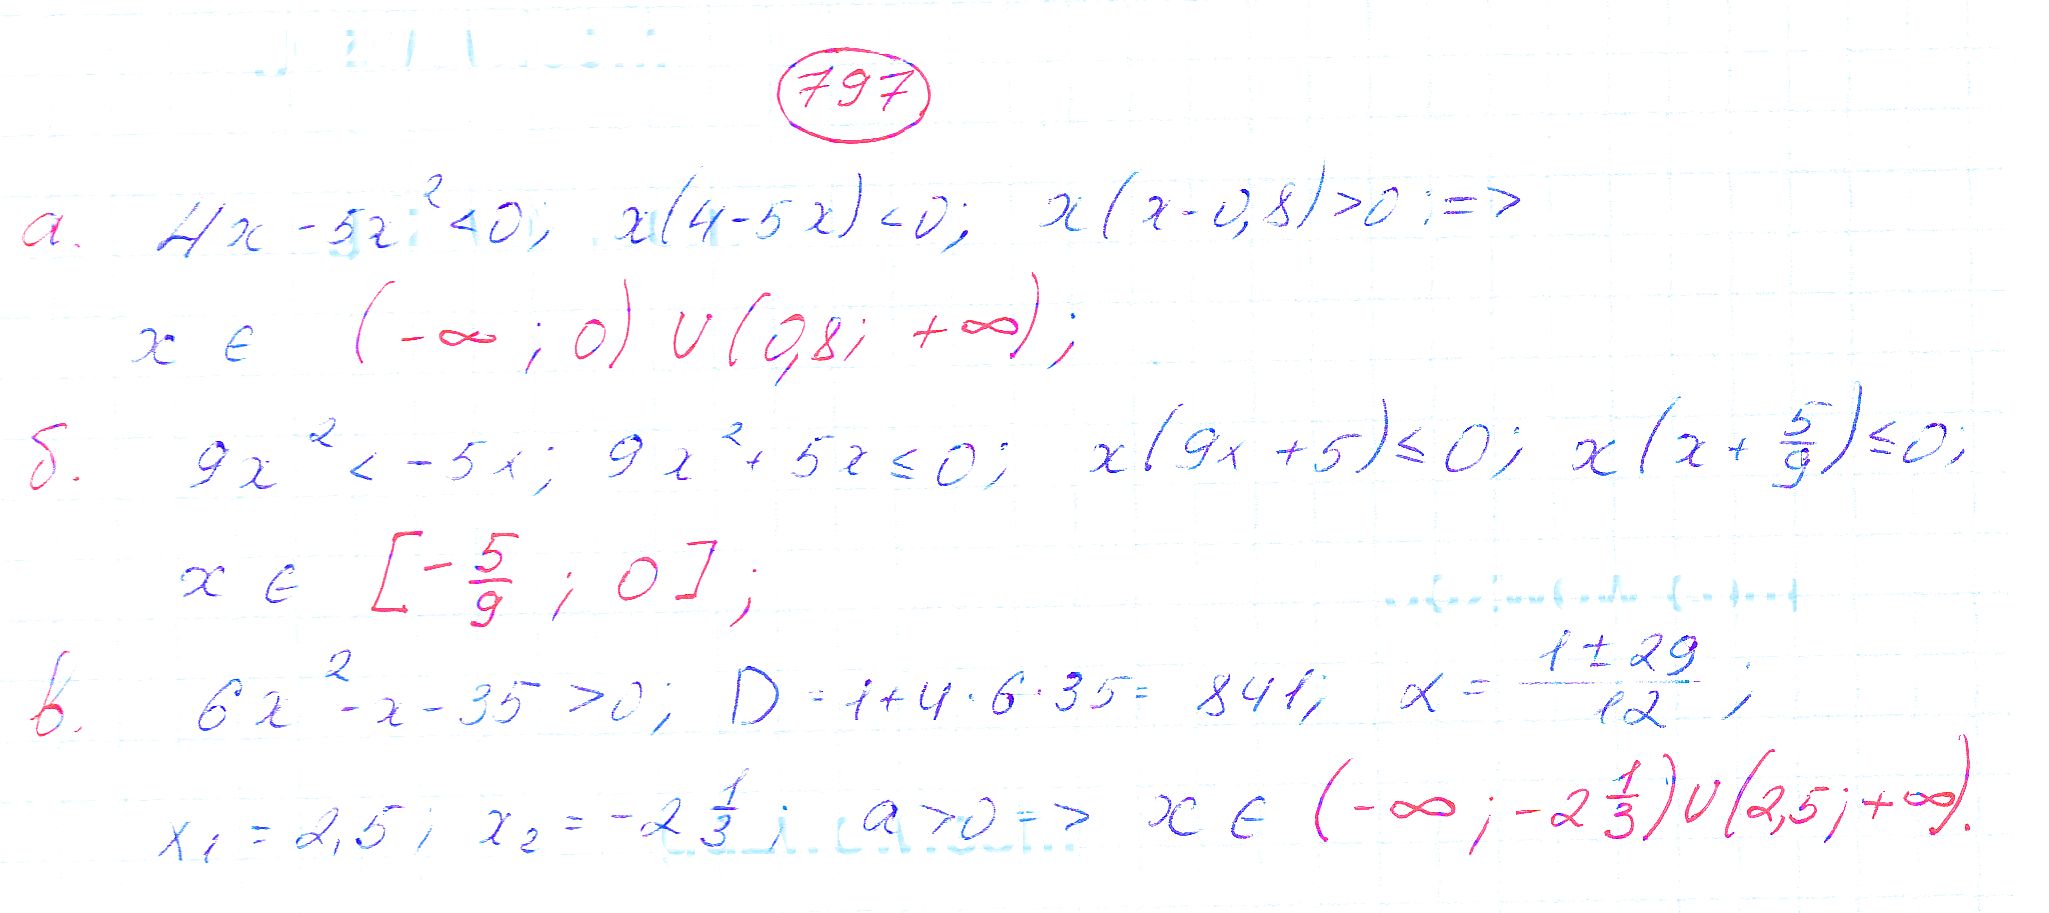 797
а. 4x - 5x² < 0; x(4 - 5x) < 0; x(x - 0,8) > 0; =>
x ∈ (-∞; 0) ∪ (0,8; +∞);
б. 9x² < -5x; 9x² + 5x ≤ 0; x(9x + 5) ≤ 0; x(x + 5/9) ≤ 0;
x ∈ [-5/9; 0];
в. 6x² - x - 35 > 0; D = 1 + 4·6·35 = 841; x = (1 ± 29)/12;
x₁ = 2,5; x₂ = -2 1/3; a > 0 => x ∈ (-∞; -2 1/3) ∪ (2,5; +∞).